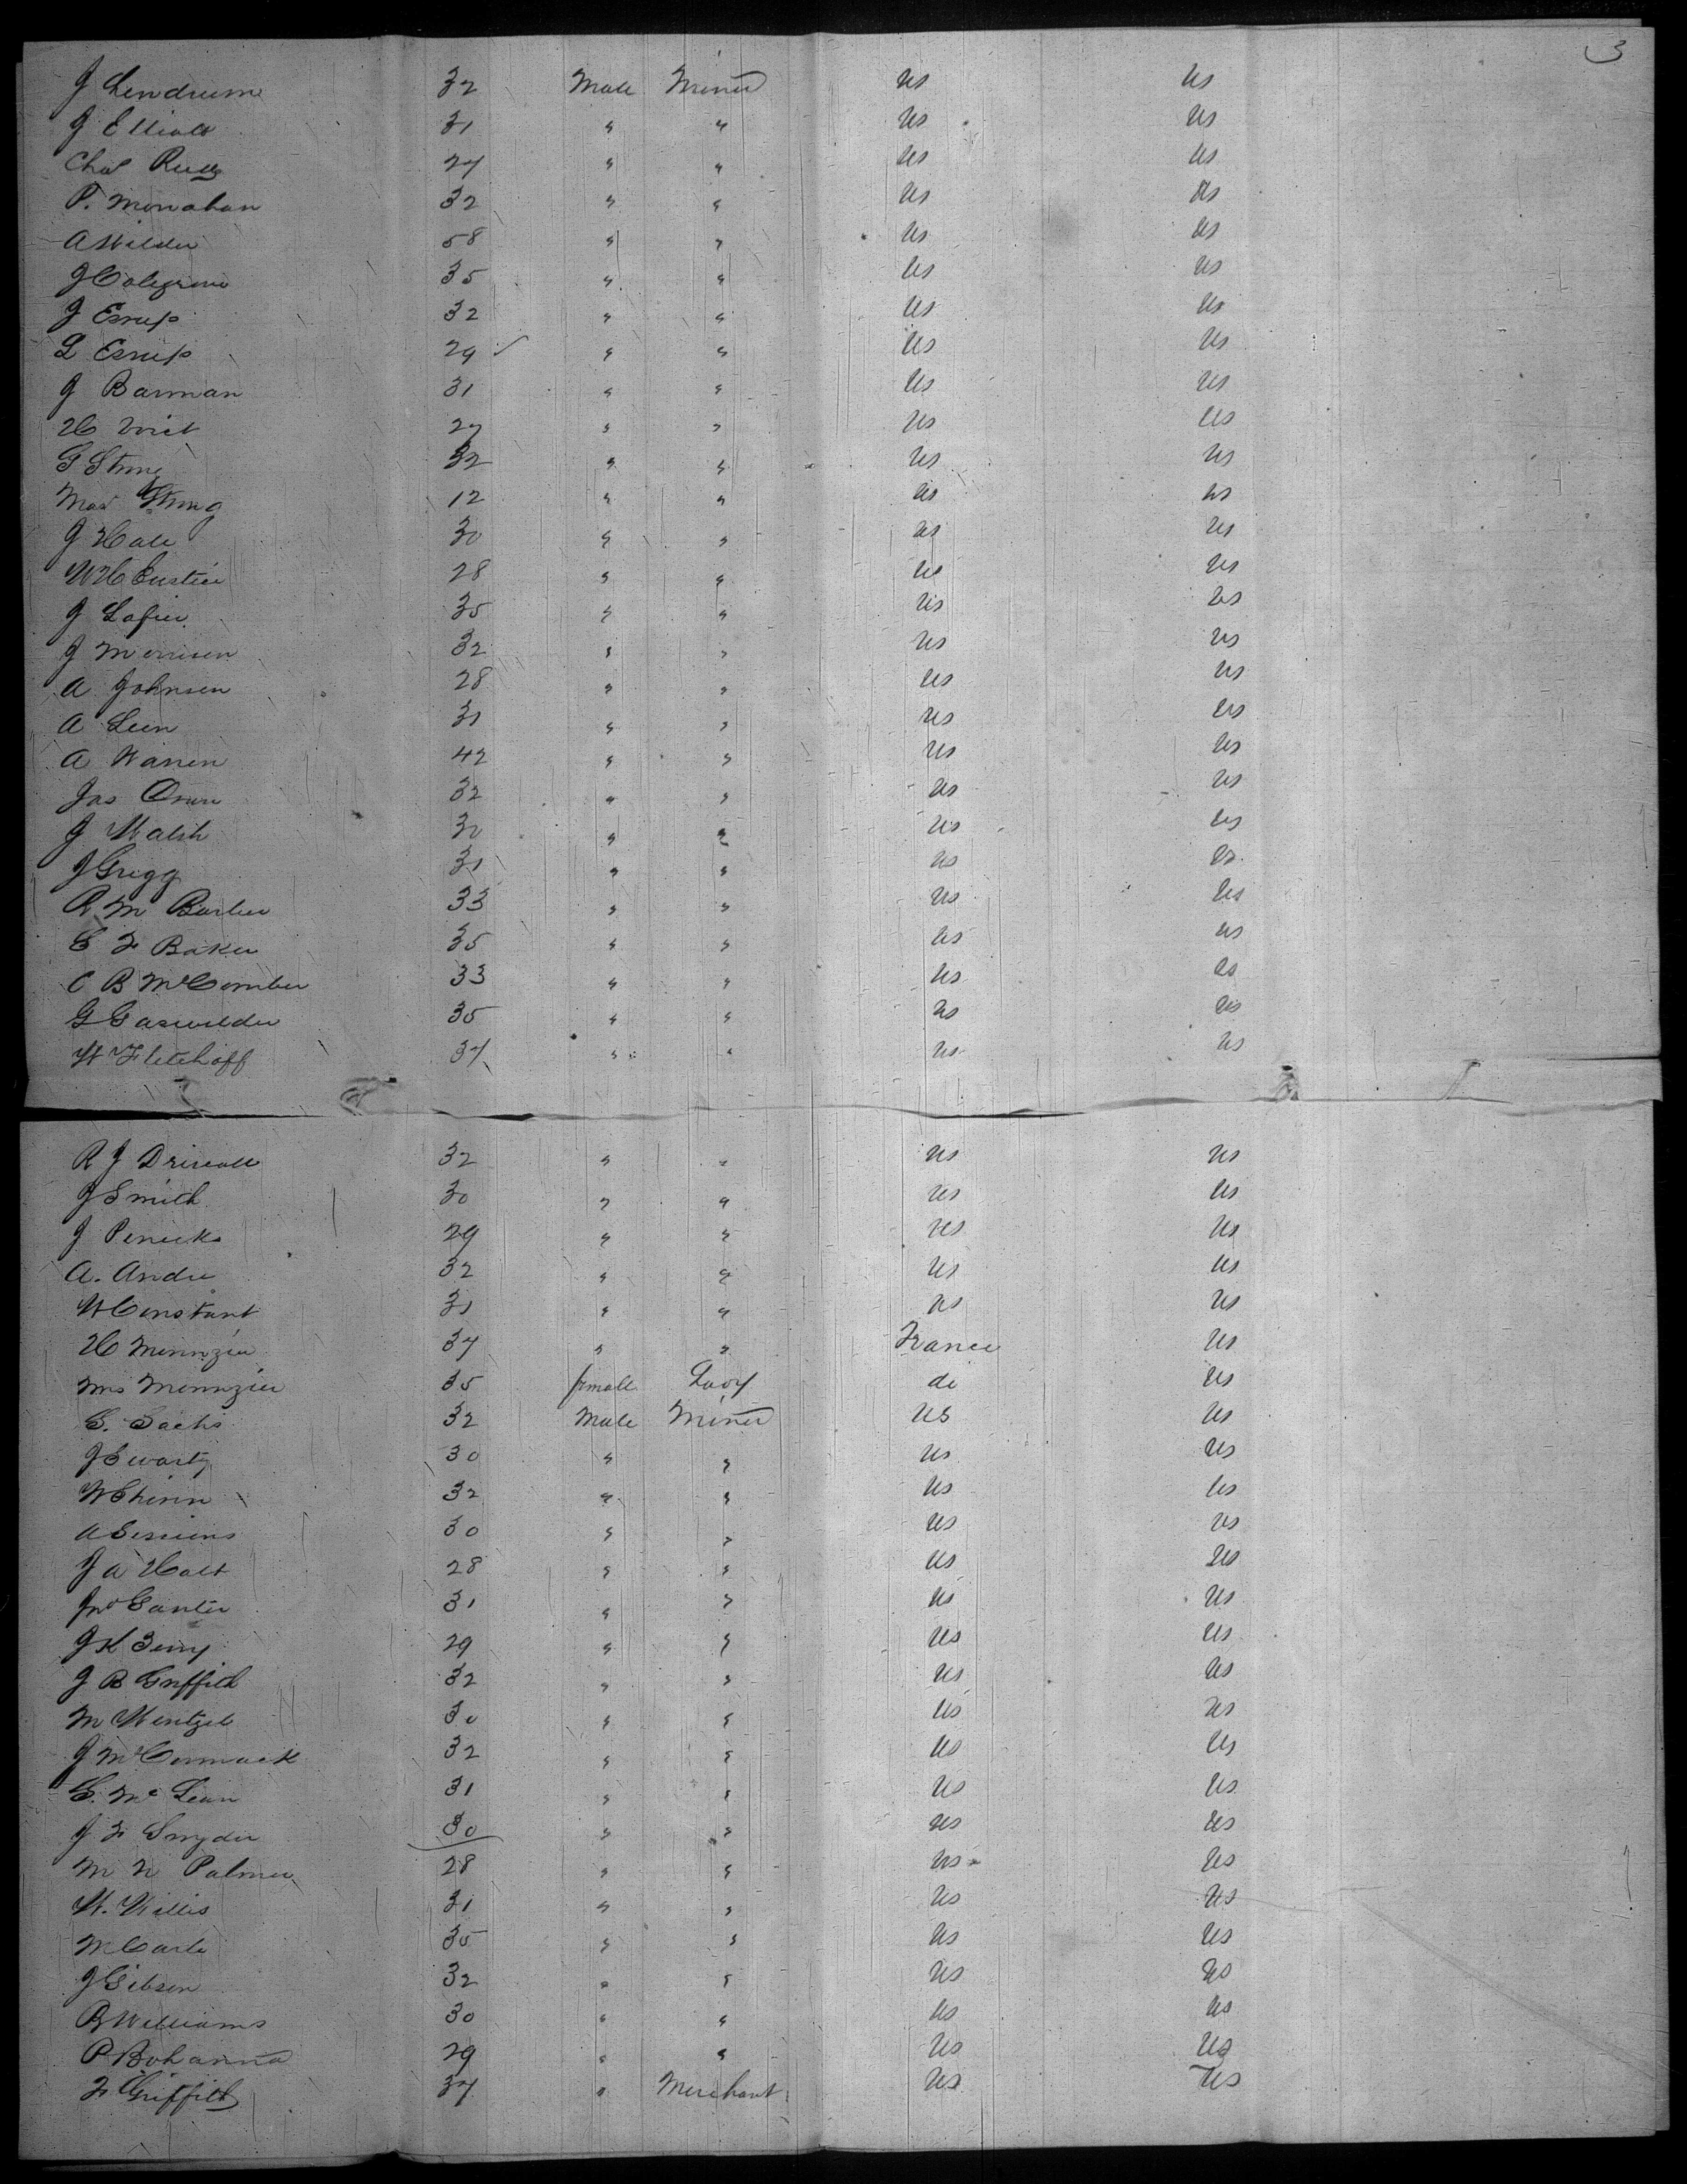 3
J Lendrum 32 Male Miner US US
J Elliott 31 " " US US
Chas Reed 27 " " US US
P. Monahan 32 " " US US
A Wilder 58 " " US US
J Colegrove 35 " " US US
J Essup 32 " " US US
L Essup 29 " " US US
J Barman 31 " " US US
H Voict 27 " " US US
G Strong 32 " " US US
Mas Strong 12 " " US US
J Hall 30 " " US US
W H Eustice 28 " " US US
J Lafier 35 " " US US
J Morrison 32 " " US US
A Johnson 28 " " US US
A Leen 31 " " US US
A Warren 42 " " US US
Jas Orun 32 " " US US
J Walsh 30 " " US US
J Gregg 31 " " US US
R M Barber 33 " " US US
C F Baker 35 " " US US
C B McComber 33 " " US US
G Gaswilder 35 " " US US
W Fletchoff 37 " " US US
R J Driscoll 32 " " US US
J Smith 30 " " US US
J Penicks 29 " " US US
A. Andre 32 " " US US
W Constant 31 " " US US
H Mennzier 37 " " France US
Mrs Mennzier 35 female Lady do US
C. Sachs 32 Male Miner US US
J Swartz 30 " " US US
W Chinn 32 " " US US
A Sessions 30 " " US US
J A Holt 28 " " US US
Jno Ganter 31 " " US US
J K Berry 29 " " US US
J B Griffith 32 " " US US
M Wentzel 30 " " US US
J McCormack 32 " " US US
C. McLean 31 " " US US
J F Snyder 30 " " US US
M N Palmer 28 " " US US
W. Willis 31 " " US US
M Carle 35 " " US US
J Gibson 32 " " US US
B Williams 30 " " US US
P Bohanna 29 " " US US
F Griffith 37 " Merchant US US